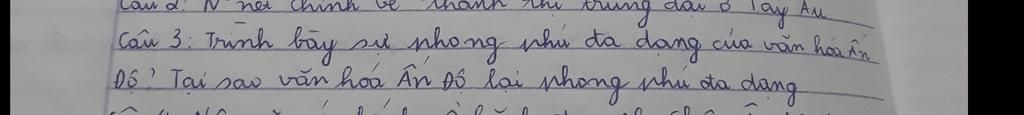 Câu 2: N nét chính về thành thị trung đại ở Tây Âu
Câu 3: Trình bày sự phong phú đa dạng của văn hoá Ấn
Độ? Tại sao văn hoá Ấn Độ lại phong phú đa dạng